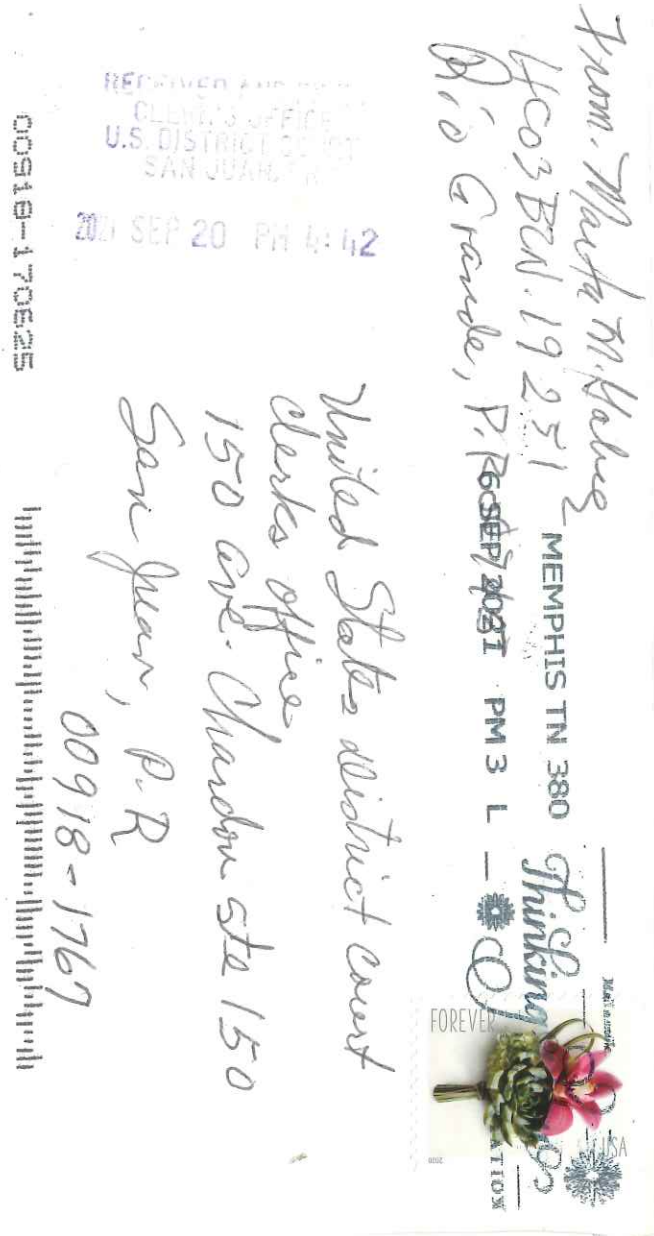 From: Marta M.
HC03 BZN. 19231
Rio Grande, P.R.
MEMPHIS TN 380
SEP 2021 PM 3 L
Thinking
FOREVER
USA
2020
RECEIVED
CLERK'S OFFICE
U.S. DISTRICT COURT
SAN JUAN
2021 SEP 20 PM 4:42
United States district court
Clerks office
150 ave. Chardon ste 150
San Juan, P.R
00918-1767
00918-170625